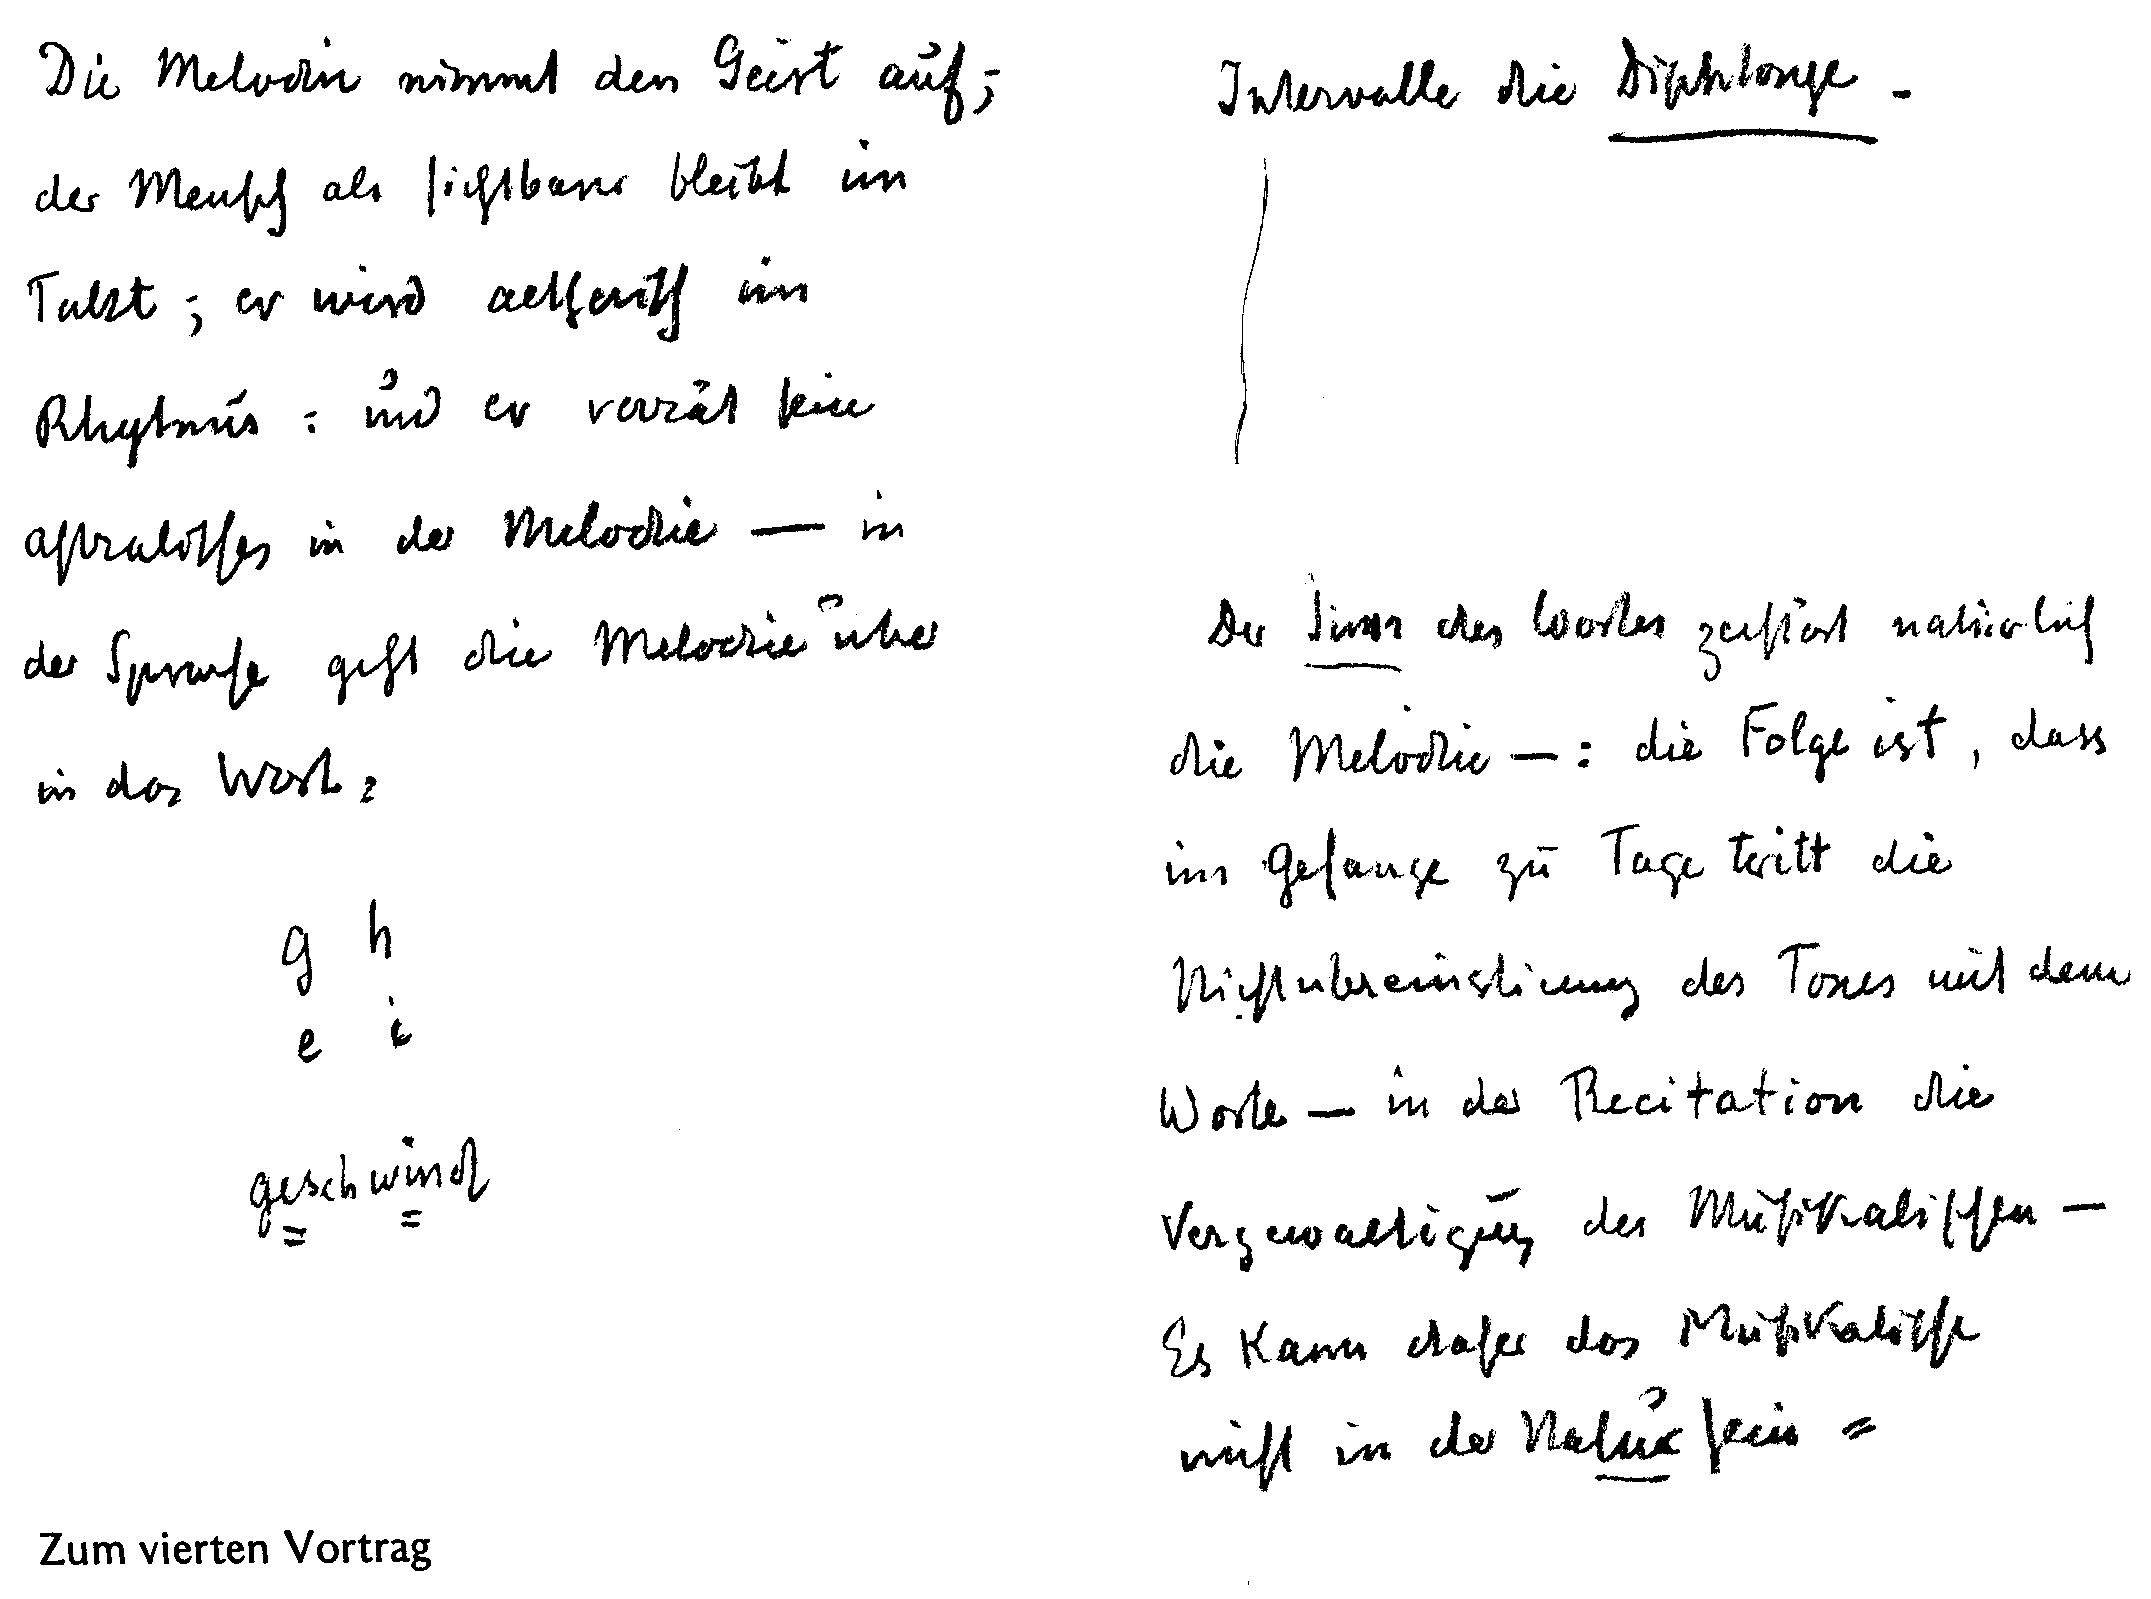 Die Melodie nimmt den Geist auf;
der Mensch als sichtbarer bleibt im
Takt; er wird aetherisch im
Rhytmus: und er verrät sein
astralisches in der Melodie — in
der Sprache geht die Melodie über
in das Wort:
g h
e i
geschwind
Intervalle die Diphtonge -
Der Sinn des Wortes zerstört natürlich
die Melodie —: die Folge ist, dass
im Gesange zu Tage tritt die
Nichtubereinstimung des Tones mit dem
Worte — in der Recitation die
Vergewaltigung des Musikalischen —
Es kann daher das Musikalische
nicht in der Natur sein =
Zum vierten Vortrag